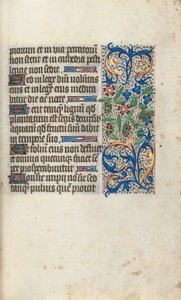 piorum et in via peccatorum
non stetit et in cathedra pesti
lencie non sedit
Sed in lege dni voluntas
eius et in lege eius medita
bitur die ac nocte
Et erit tanqm lignum qd
plantatum est secus decursus
aquarum qd fructum suum dabit
in tempore suo
Et folium eius non defluet
et omnia quecumqz faciet se
per prosperabuntur
Non sic impii non sic sed
tanqm puluis que proicit